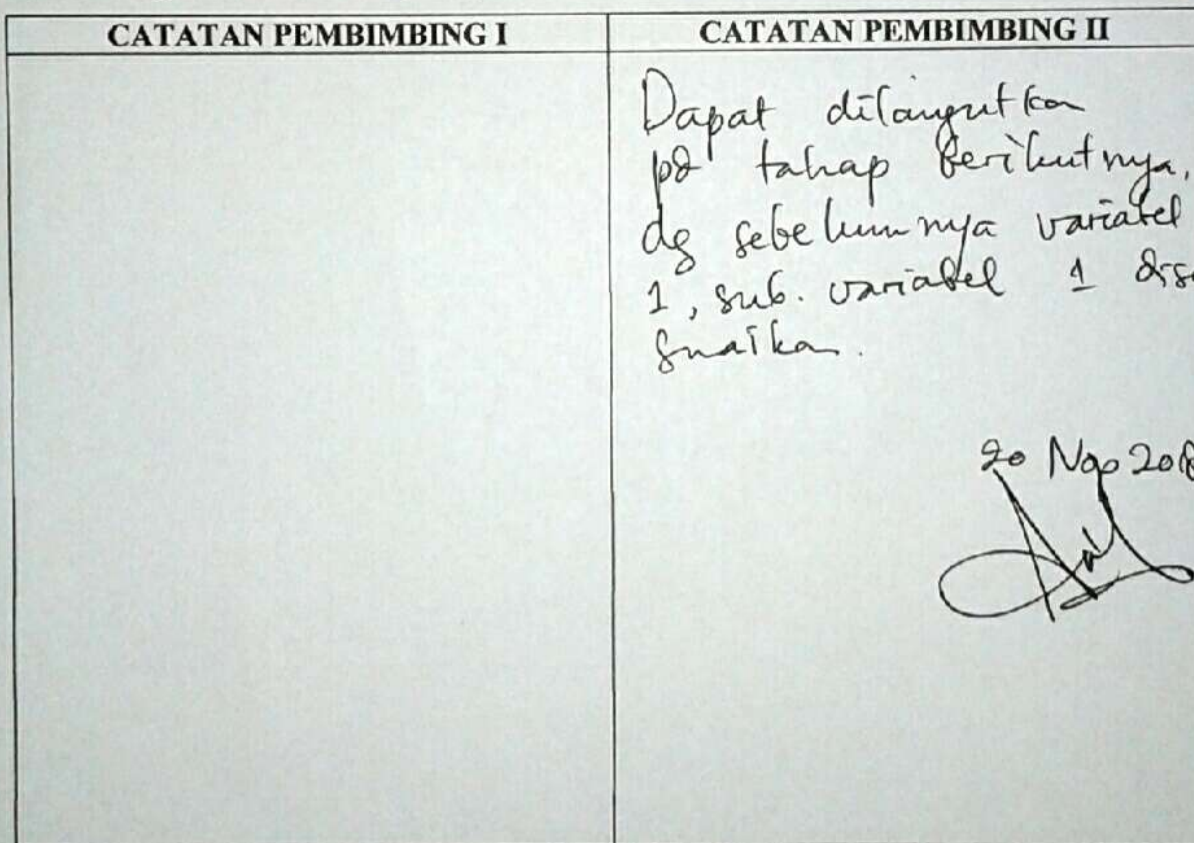 CATATAN PEMBIMBING I
CATATAN PEMBIMBING II
Dapat dilanjutkan
pd tahap berikutnya,
dg sebelumnya variabel
1, sub. variabel 1 dise
suaikan.
20